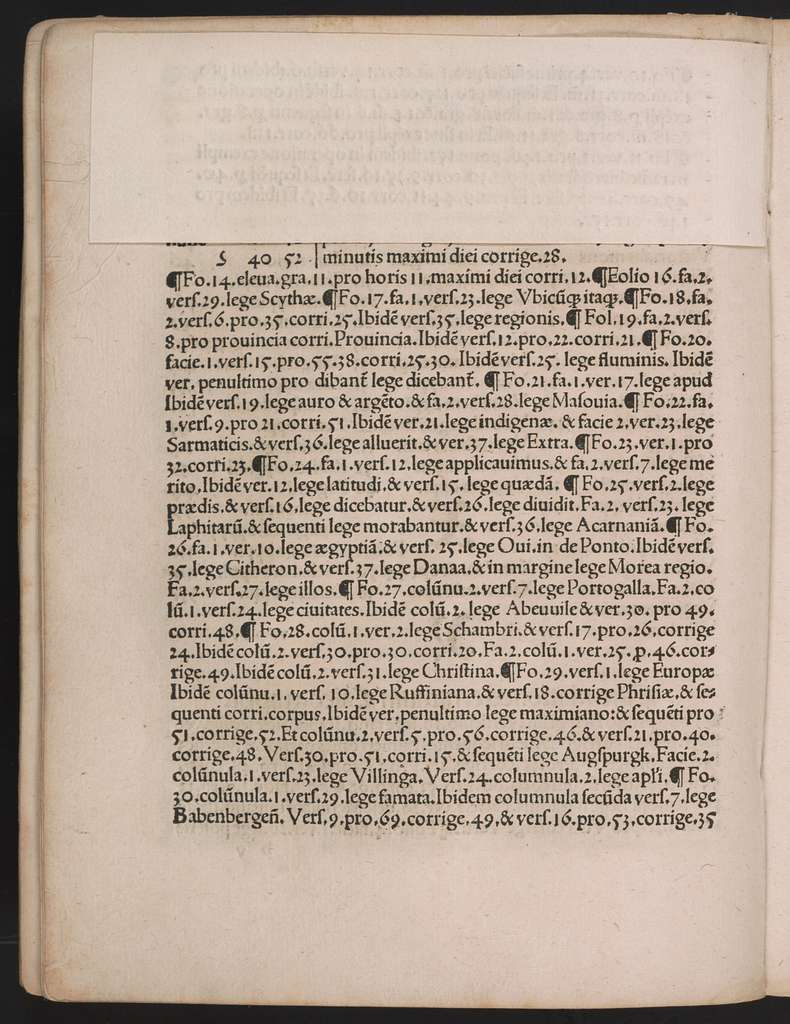 S 40 52 | minutis maximi diei corrige.28.
¶Fo.14.eleua.gra.11.pro horis 11.maximi diei corri.12.¶Eolio 16.fa.2.
verſ.29.lege Scythæ.¶Fo.17.fa.1.verſ.23.lege Vbicūqꝫ itaqꝫ.¶Fo.18.fa.
2.verſ.6.pro.35.corri.25.Ibidē verſ.35.lege regionis.¶ Fol.19.fa.2.verſ.
8.pro prouincia corri.Prouincia.Ibidē verſ.12.pro.22.corri.21.¶ Fo.20.
facie.1.verſ.15.pro.55.38.corri.25.30. Ibidē verſ.25. lege fluminis. Ibidē
ver. penultimo pro dibant̄ lege dicebant̄. ¶ Fo.21.fa.1.ver.17.lege apud
Ibidē verſ.19.lege auro & argēto.& fa.2.verſ.28.lege Maſouia.¶ Fo.22.fa.
1.verſ.9.pro 21.corri.51.Ibidē ver.21.lege indigenæ. & facie 2.ver.23.lege
Sarmaticis.& verſ.36.lege alluerit.& ver.37.lege Extra.¶Fo.23.ver.1.pro
32.corri.23.¶Fo.24.fa.1.verſ.12.lege applicauimus.& fa.2.verſ.7.lege me
rito.Ibidē ver.12.lege latitudi.& verſ.15. lege quædā. ¶ Fo.25.verſ.2.lege
prædis.& verſ.16.lege dicebatur.& verſ.26.lege diuidit.Fa.2. verſ.23. lege
Laphitarū.& ſequenti lege morabantur.& verſ.36.lege Acarnaniā.¶ Fo.
26.fa.1.ver.10.lege ægyptiā.& verſ. 25.lege Oui.in de Ponto.Ibidē verſ.
35.lege Citheron.& verſ.37.lege Danaa.& in margine lege Morea regio.
Fa.2.verſ.27.lege illos.¶ Fo.27.colūnu.2.verſ.7.lege Portogalla.Fa.2.co
lū.1.verſ.24.lege ciuitates.Ibidē colū.2. lege Abeuuile & ver.30. pro 49.
corri.48.¶ Fo.28.colū.1.ver.2.lege Schambri.& verſ.17.pro.26.corrige
24.Ibidē colū.2.verſ.30.pro.30.corri.20.Fa.2.colū.1.ver.25.ꝓ.46.cor⸗
rige.49.Ibidē colū.2.verſ.31.lege Chriſtina.¶Fo.29.verſ.1.lege Europæ
Ibidē colūnu.1.verſ. 10.lege Ruffiniana.& verſ.18.corrige Phriſiæ.& ſe⸗
quenti corri.corpus.Ibidē ver.penultimo lege maximiano:& ſequēti pro
51.corrige.52.Et colūnu.2.verſ.5.pro.56.corrige.46.& verſ.21.pro.40.
corrige.48. Verſ.30.pro.51.corri.15.& ſequēti lege Augſpurgk.Facie.2.
colūnula.1.verſ.23.lege Villinga.Verſ.24.columnula.2.lege apl'i.¶ Fo.
30.colūnula.1.verſ.29.lege famata.Ibidem columnula ſecūda verſ.7.lege
Babenbergen̄. Verſ.9.pro.69.corrige.49.& verſ.16.pro.53.corrige.35